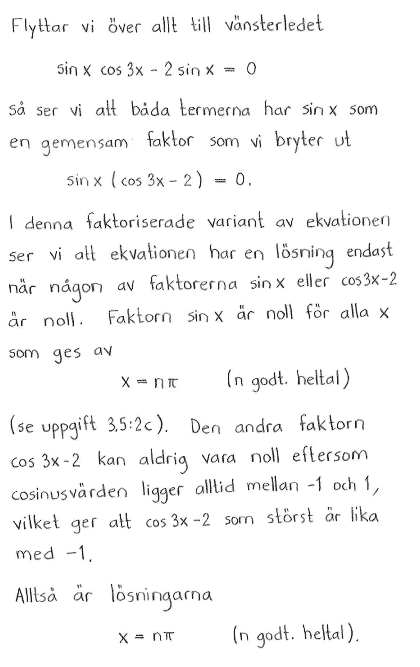 Flyttar vi över allt till vänsterledet
sin x cos 3x - 2 sin x = 0
så ser vi att båda termerna har sin x som
en gemensam faktor som vi bryter ut
sin x (cos 3x - 2) = 0.
I denna faktoriserade variant av ekvationen
ser vi att ekvationen har en lösning endast
när någon av faktorerna sin x eller cos 3x-2
är noll. Faktorn sin x är noll för alla x
som ges av
x = nπ (n godt. heltal)
(se uppgift 3.5:2c). Den andra faktorn
cos 3x-2 kan aldrig vara noll eftersom
cosinusvärden ligger alltid mellan -1 och 1,
vilket ger att cos 3x-2 som störst är lika
med -1.
Alltså är lösningarna
x = nπ (n godt. heltal).